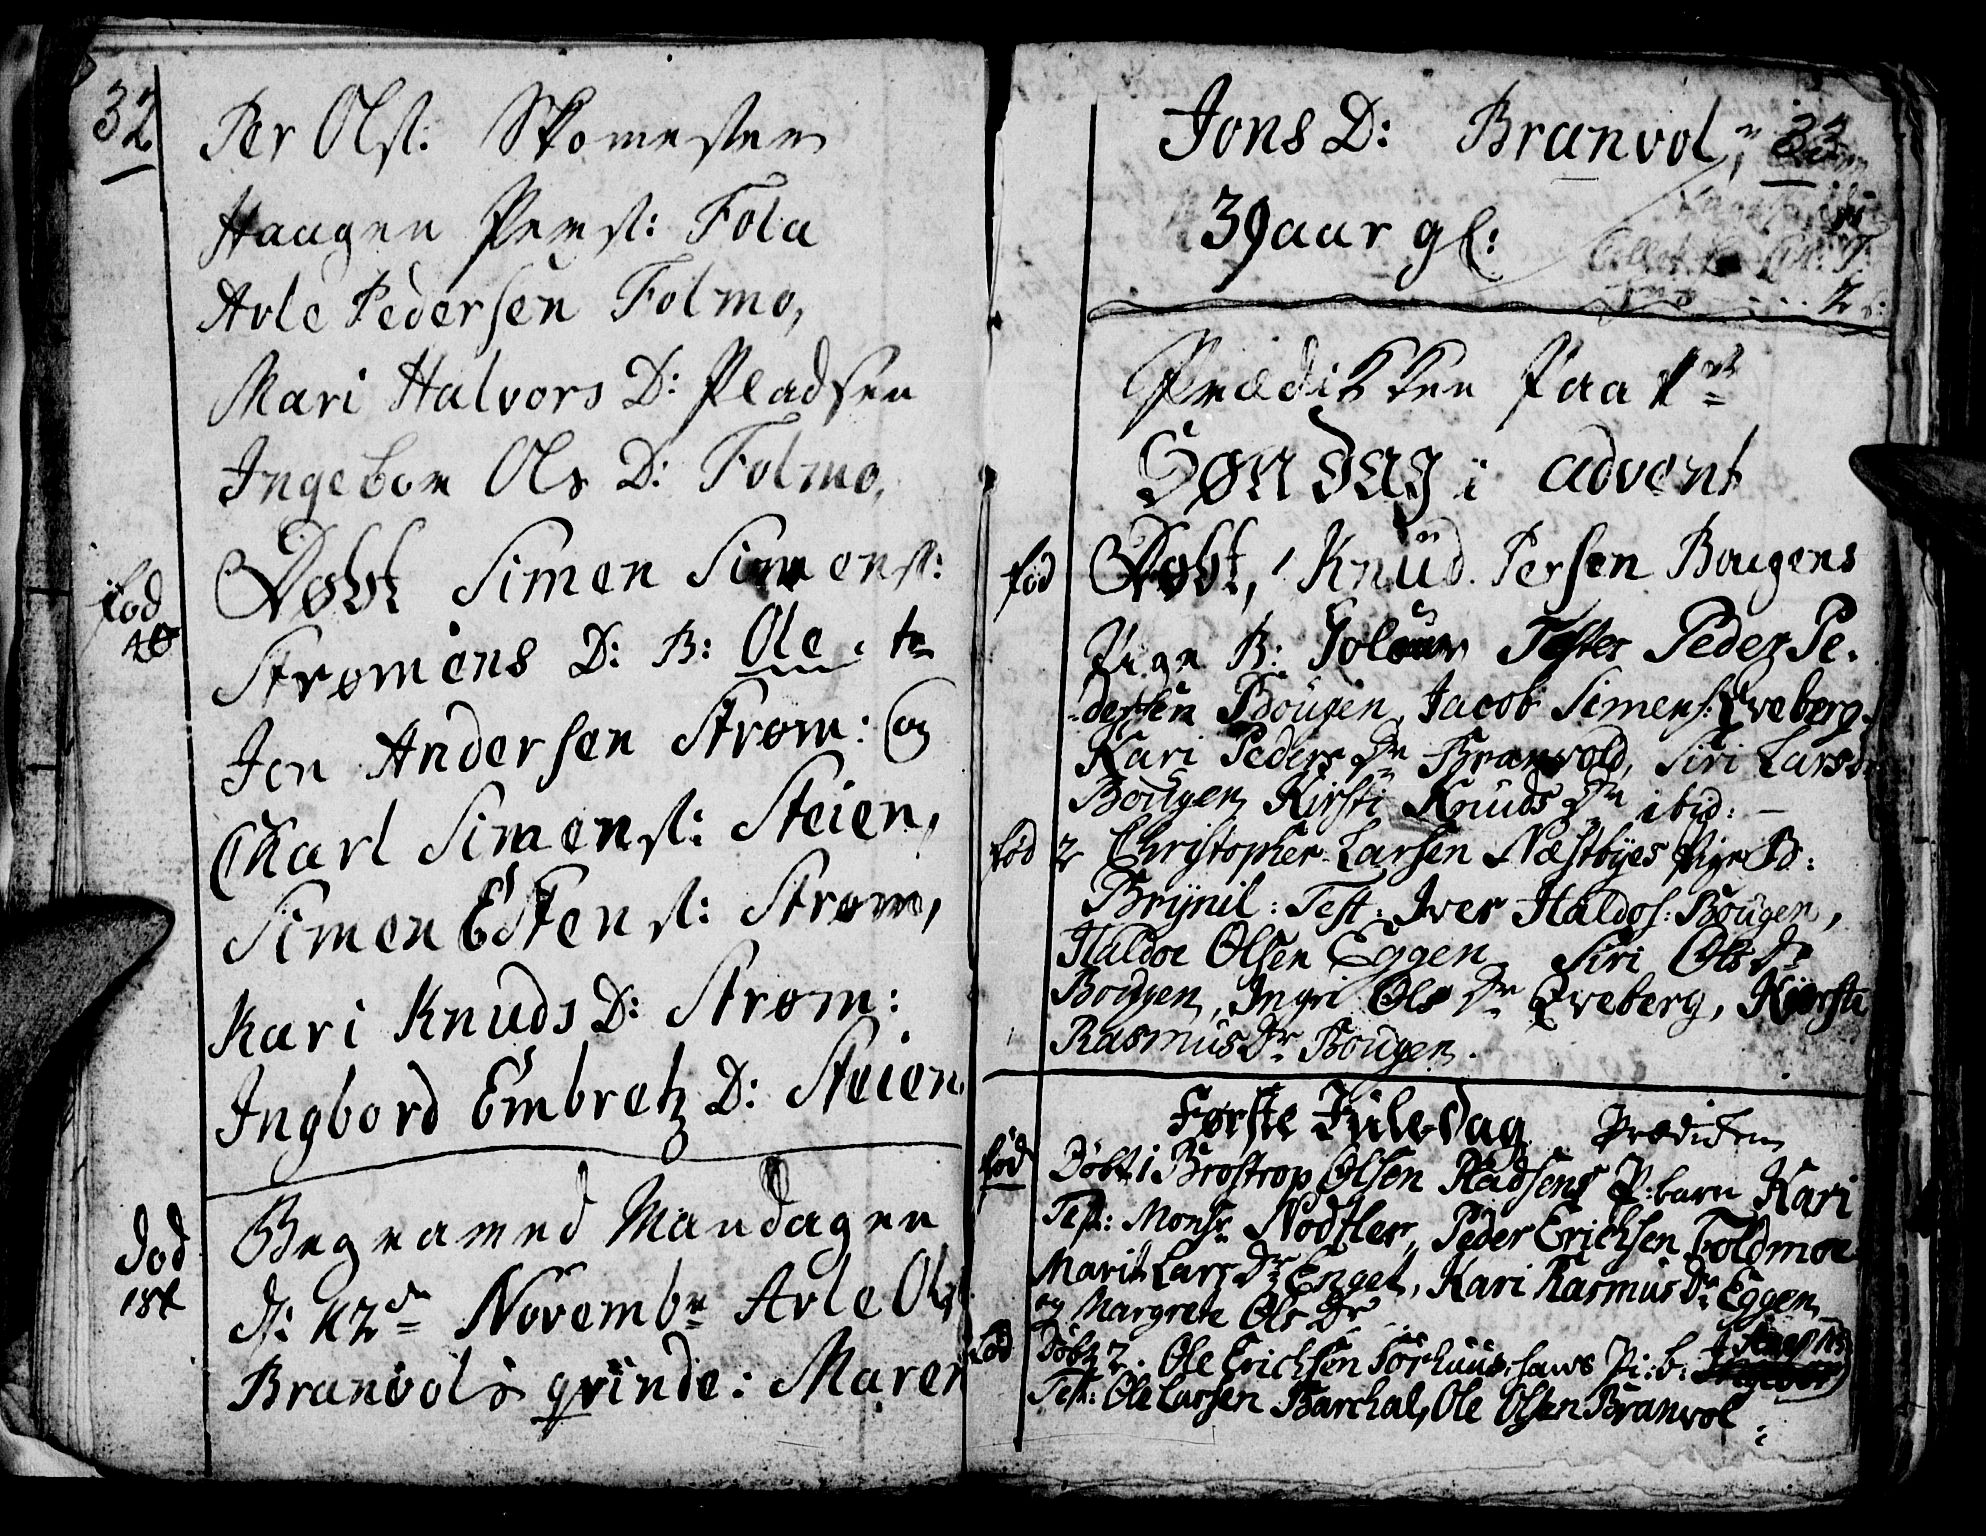 32
Per Olss: Skomesteren
Haagen Peerss: Fola
Arle Pedersen Folmo,
Mari Halvors D: Pladsen
Ingeborr Ols D: Folmo,
fød
Døbt Simen Simenss:
Strømens D: B: Ole. te
Jon Andersen Strøm: og
Charl Simenss: Steien,
Simen Estenss: Strøm,
Kari Knuds D: Strøm:
Ingbord Embretz D: Steien
død
Begraaved Mandagen
d: 12te Novembr Arle Ols:
Branvols qvinde: Maren
Jons D: Branvol, 33
39 aar gl:
2
Prædikken Paa 1ste
Søndag i advent
fød Døbt, 1 Knud Persen Bougens
Pige B: Golaur Testes Peder Pe-
dersen Bougen, Jacob Simens: Qveberg,
Kari Peders Dr Branvold, Siri Larsdr
Bougen Kirsti Knuds Dr ibid: —
fød 2 Christopher Larsen Næstbyes Pige B:
Brynil: Test: Iver Haldos: Bougen,
Haldor Olsen Eggen Siri Ols Dr
Bougen, Ingri Ols Dr Qveberg, Kirsti
Rasmus Dr Bougen.
Første Juledag Prædiken
fød Døbt 1 Brostrop Olsen Pladsens P: barn Kari
Test: Monsr Nodtler, Peder Erichsen Foldmoe
Marit Lars Dr Enget, Kari Rasmus Dr Eggen
og Margrete Ols Dr ...
fød Døbt 2. Ole Erichsen Torhuus: hans Pi: b:
Test: Ole Larsen Barchal, Ole Olsen Branvol